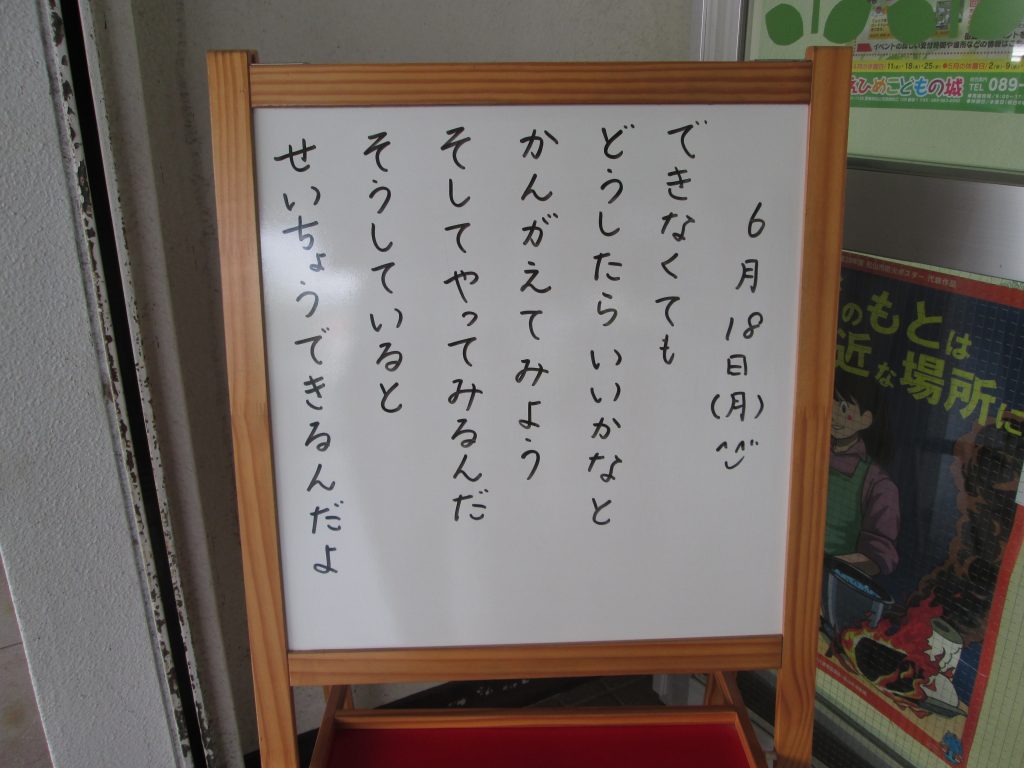 6月18日(月)
できなくても
どうしたらいいかなと
かんがえてみよう
そしてやってみるんだ
そうしていると
せいちょうできるんだよ
えひめこどもの城
TEL 089-
のもとは
近な場所に